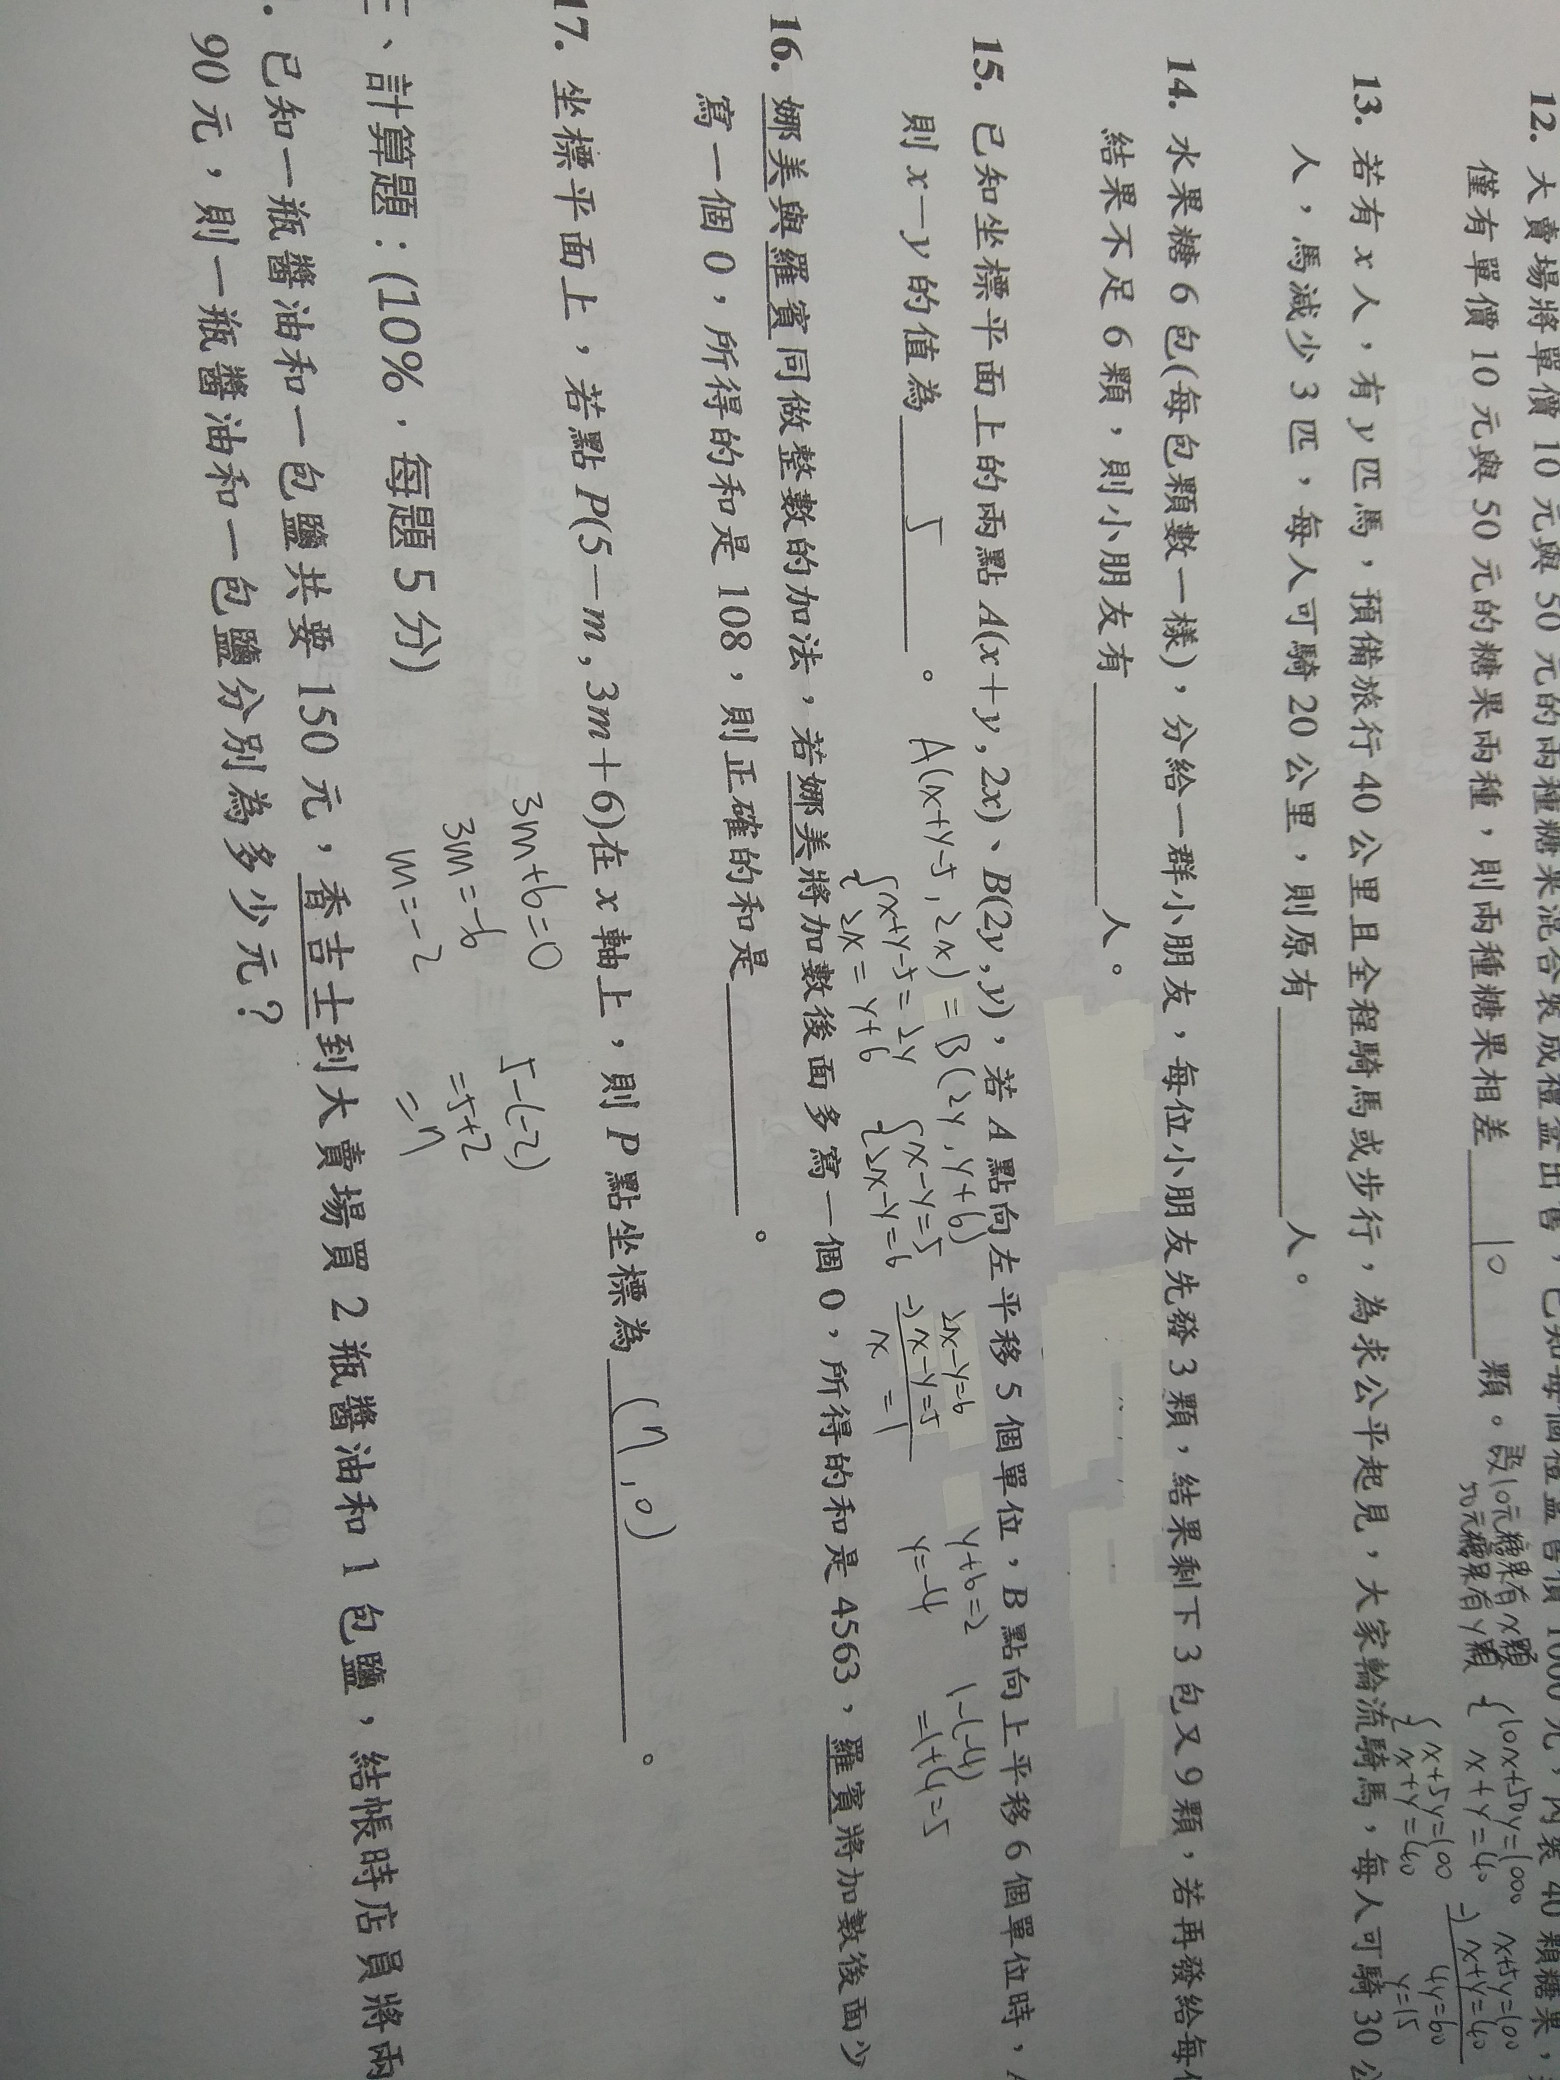 12. 大賣場將單價 10 元與 50 元的兩種糖果混合裝成禮盒出售，已知每個禮盒售價 1000 元，內裝 40 顆糖果，
僅有單價 10 元與 50 元的糖果兩種，則兩種糖果相差 10 顆。
設10元糖果有x顆
50元糖果有y顆
{10x+50y=1000
x+y=40
x+5y=100
-) x+y=40
4y=60
y=15
{x+5y=100
x+y=40
13. 若有 x 人，有 y 匹馬，預備旅行 40 公里且全程騎馬或步行，為求公平起見，大家輪流騎馬，每人可騎 30 公
人，馬減少 3 匹，每人可騎 20 公里，則原有 人。
14. 水果糖 6 包(每包顆數一樣)，分給一群小朋友，每位小朋友先發 3 顆，結果剩下 3 包又 9 顆，若再發給每
結果不足 6 顆，則小朋友有 人。
15. 已知坐標平面上的兩點 A(x＋y , 2x)、B(2y , y)，若 A 點向左平移 5 個單位，B 點向上平移 6 個單位時，
則 x－y 的值為 5 。
A(x+y-5 , 2x) = B(2y , y+6)
{x+y-5=2y
2x=y+6
{x-y=5
2x-y=6
2x-y=6
-) x-y=5
x =1
y+6=2
y=-4
1-(-4)
=1+4=5
16. 娜美與羅賓同做整數的加法，若娜美將加數後面多寫一個 0，所得的和是 4563，羅賓將加數後面少
寫一個 0，所得的和是 108，則正確的和是 。
17. 坐標平面上，若點 P(5－m , 3m＋6)在 x 軸上，則 P 點坐標為 (7,0) 。
3m+6=0
3m=-6
m=-2
5-(-2)
=5+2
=7
三、計算題：(10%，每題 5 分)
. 已知一瓶醬油和一包鹽共要 150 元，香吉士到大賣場買 2 瓶醬油和 1 包鹽，結帳時店員將兩
90 元，則一瓶醬油和一包鹽分別為多少元？